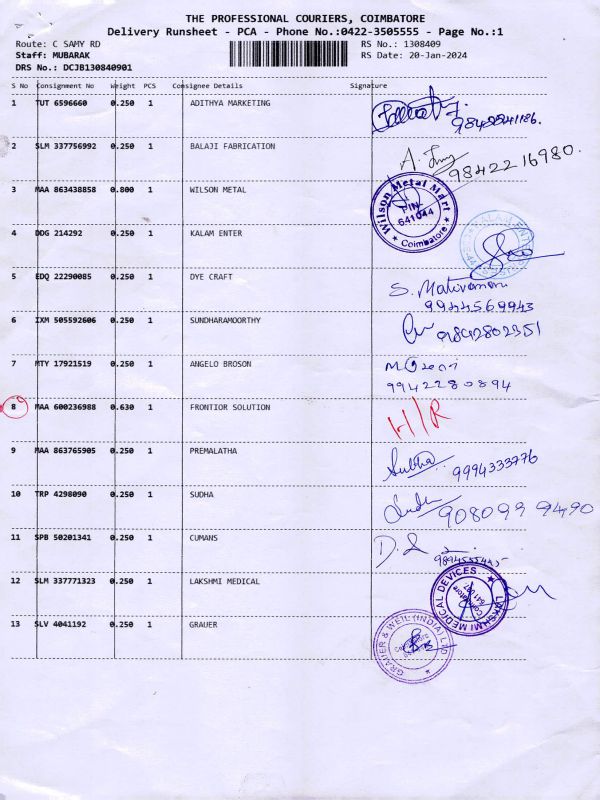 THE PROFESSIONAL COURIERS, COIMBATORE
Delivery Runsheet - PCA - Phone No.:0422-3505555 - Page No.:1
Route: C SAMY RD RS No.: 1308409
Staff: MUBARAK RS Date: 20-Jan-2024
DRS No.: DCJB130840901
S No Consignment No Weight PCS Consignee Details Signature
1 TUT 6596660 0.250 1 ADITHYA MARKETING
2 SLM 337756992 0.250 1 BALAJI FABRICATION 9842216980.
3 MAA 863438858 0.800 1 WILSON METAL Wilson Metal Mart PIN- 641044 * Coimbatore *
4 DDG 214292 0.250 1 KALAM ENTER
5 EDQ 22290085 0.250 1 DYE CRAFT S. Mativanan
9944569943
6 IXM 505592606 0.250 1 SUNDHARAMOORTHY 9842802351
7 MTY 17921519 0.250 1 ANGELO BROSON
9942280894
8 MAA 600236988 0.630 1 FRONTIOR SOLUTION H/R
9 MAA 863765905 0.250 1 PREMALATHA Subha 9994333776
10 TRP 4298090 0.250 1 SUDHA 9080999490
11 SPB 50201341 0.250 1 CUMANS
12 SLM 337771323 0.250 1 LAKSHMI MEDICAL LAKSHMI MEDICAL DEVICES
13 SLV 4041192 0.250 1 GRAUER GRAUER & WEIL (INDIA) LTD